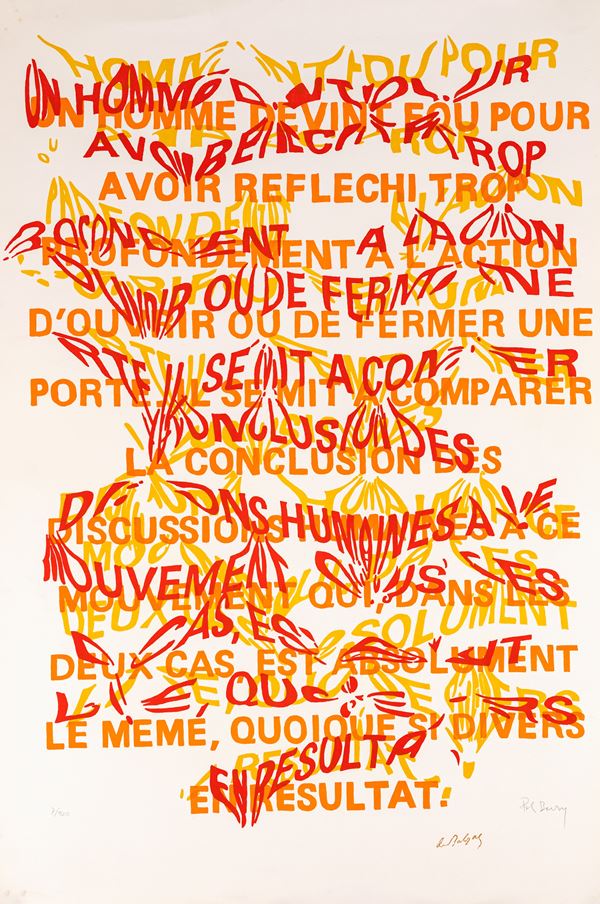 UN HOMME DEVINT FOU POUR
AVOIR REFLECHI TROP
PROFONDEMENT A L'ACTION
D'OUVRIR OU DE FERMER UNE
PORTE. IL SE MIT A COMPARER
LA CONCLUSION DES
DISCUSSIONS HUMAINES A CE
MOUVEMENT QUI, DANS LES
DEUX CAS, EST ABSOLUMENT
LE MEME, QUOIQUE SI DIVERS
EN RESULTAT.
Pol Bury